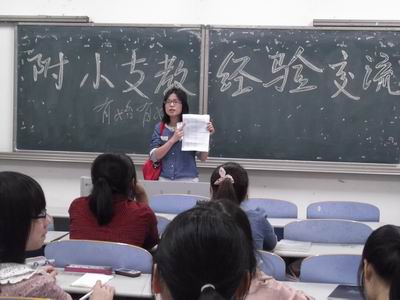 附小支教经验交流
有始有